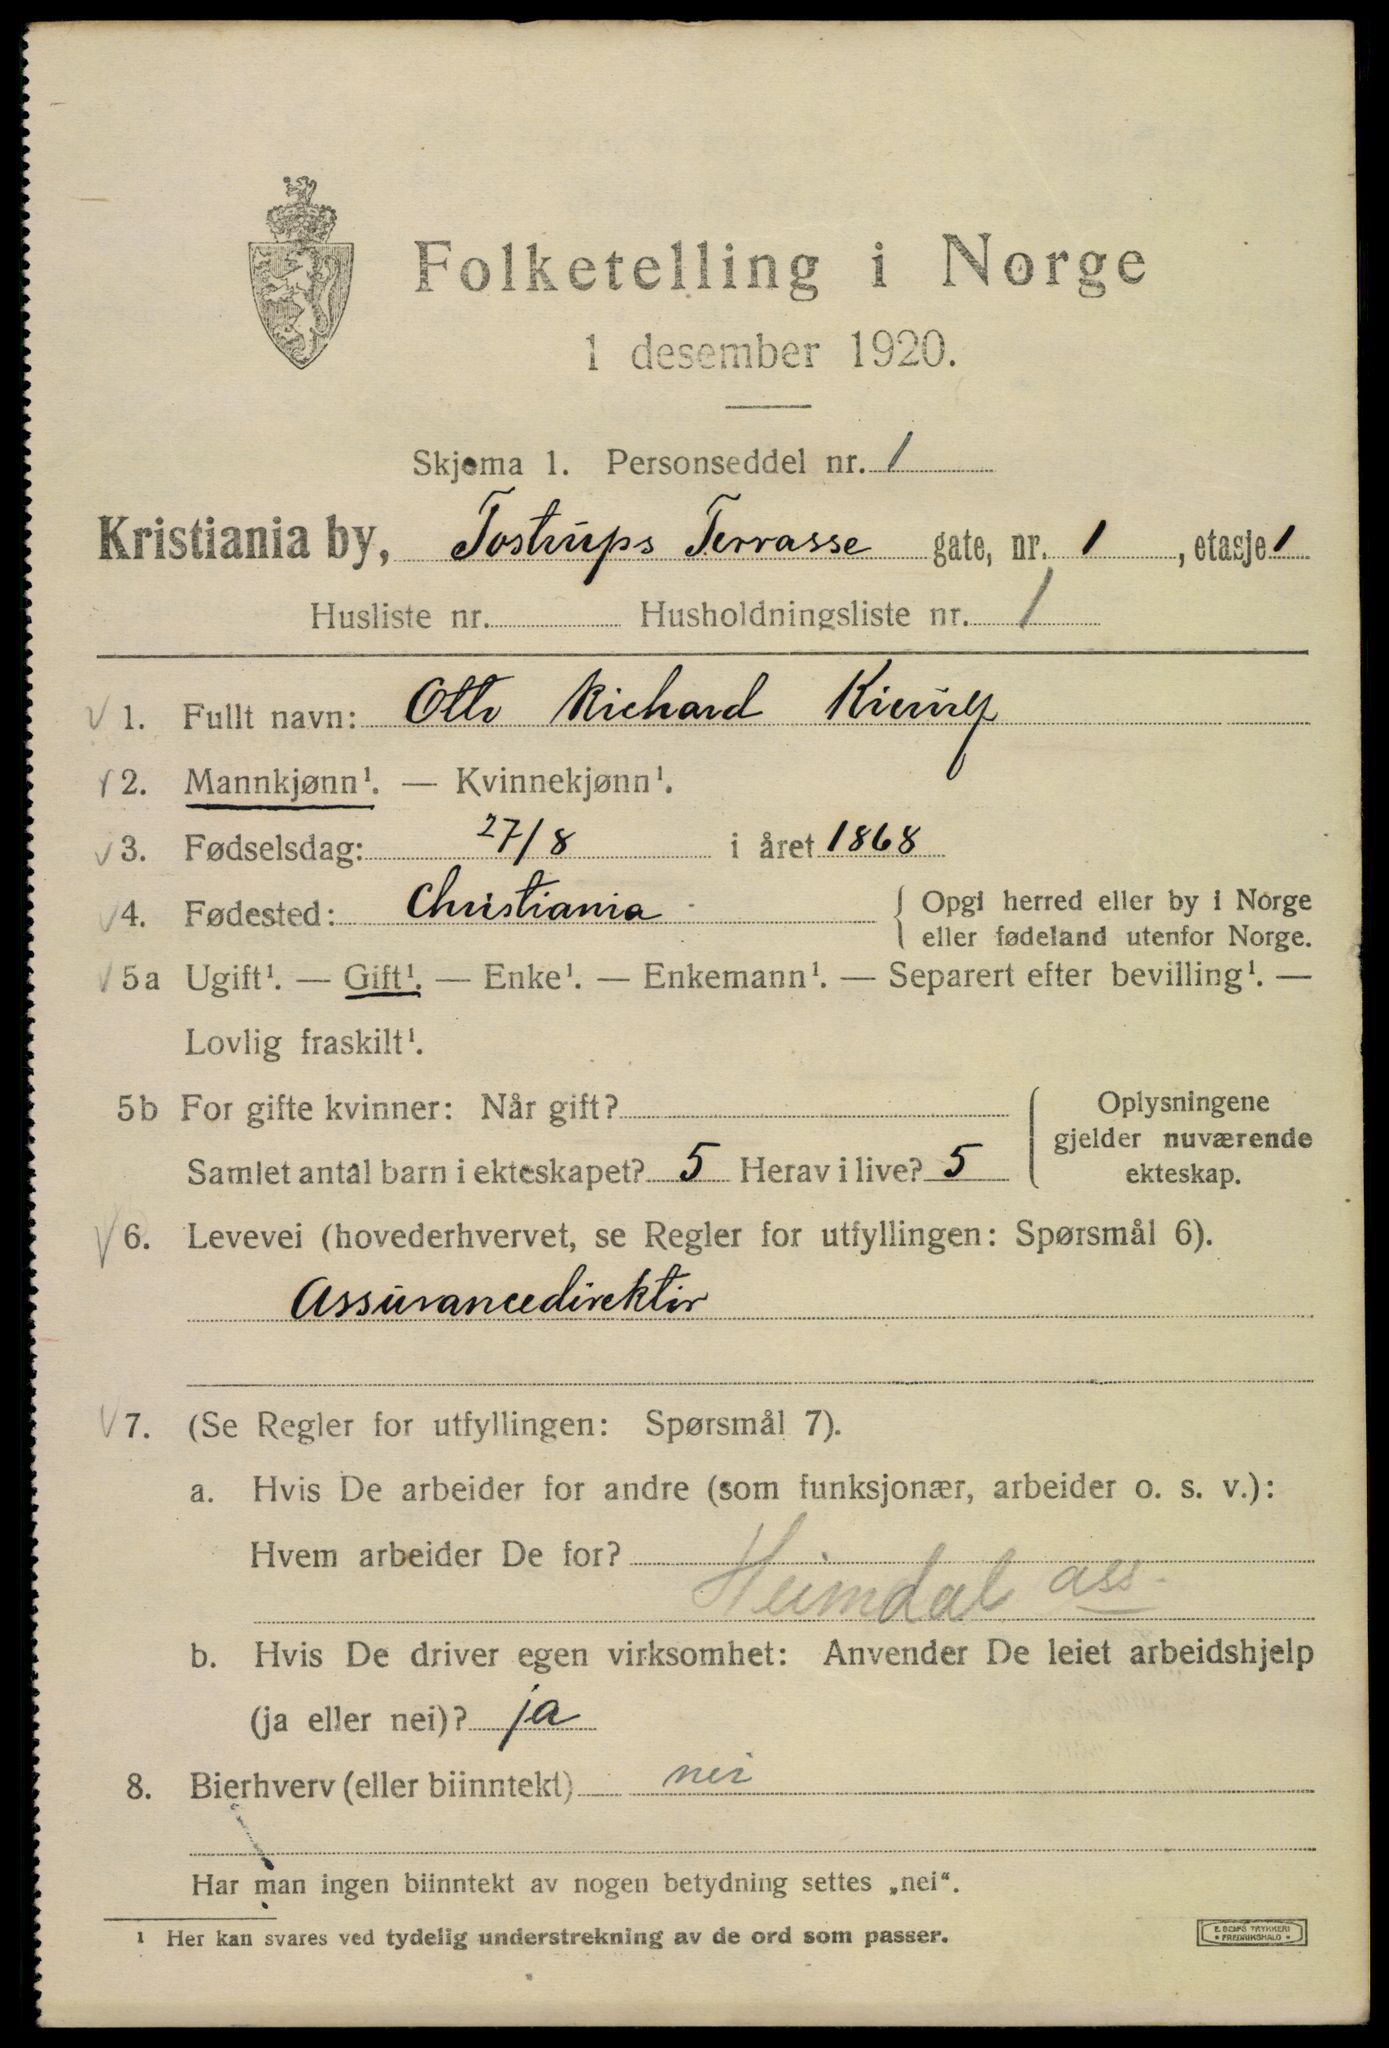 Folketelling i Norge
1 desember 1920.
Skjema 1. Personseddel nr. 1
Kristiania by, Tostrups Terrasse gate, nr. 1, etasje 1
Husliste nr. Husholdningsliste nr. 1
√ 1. Fullt navn: Otto Richard Kierulf
√ 2. Mannkjønn¹. — Kvinnekjønn¹.
√ 3. Fødselsdag: 27/8 i året 1868
√ 4. Fødested: Christiania { Opgi herred eller by i Norge
eller fødeland utenfor Norge.
√ 5a Ugift¹. — Gift¹. — Enke¹. — Enkemann¹. — Separert efter bevilling¹. —
Lovlig fraskilt¹.
5b For gifte kvinner: Når gift? { Oplysningene
gjelder nuværende
Samlet antal barn i ekteskapet? 5 Herav i live? 5
ekteskap.
√ 6. Levevei (hovederhvervet, se Regler for utfyllingen: Spørsmål 6).
Assurancedirektør
√ 7. (Se Regler for utfyllingen: Spørsmål 7).
a. Hvis De arbeider for andre (som funksjonær, arbeider o. s. v.):
Hvem arbeider De for?
Heimdal ass.
b. Hvis De driver egen virksomhet: Anvender De leiet arbeidshjelp
(ja eller nei)? ja
8. Bierhverv (eller biinntekt) nei
Har man ingen biinntekt av nogen betydning settes „nei“.
¹ Her kan svares ved tydelig understrekning av de ord som passer.
E. SEMS TRYKKERI
• FREDRIKSHALD •